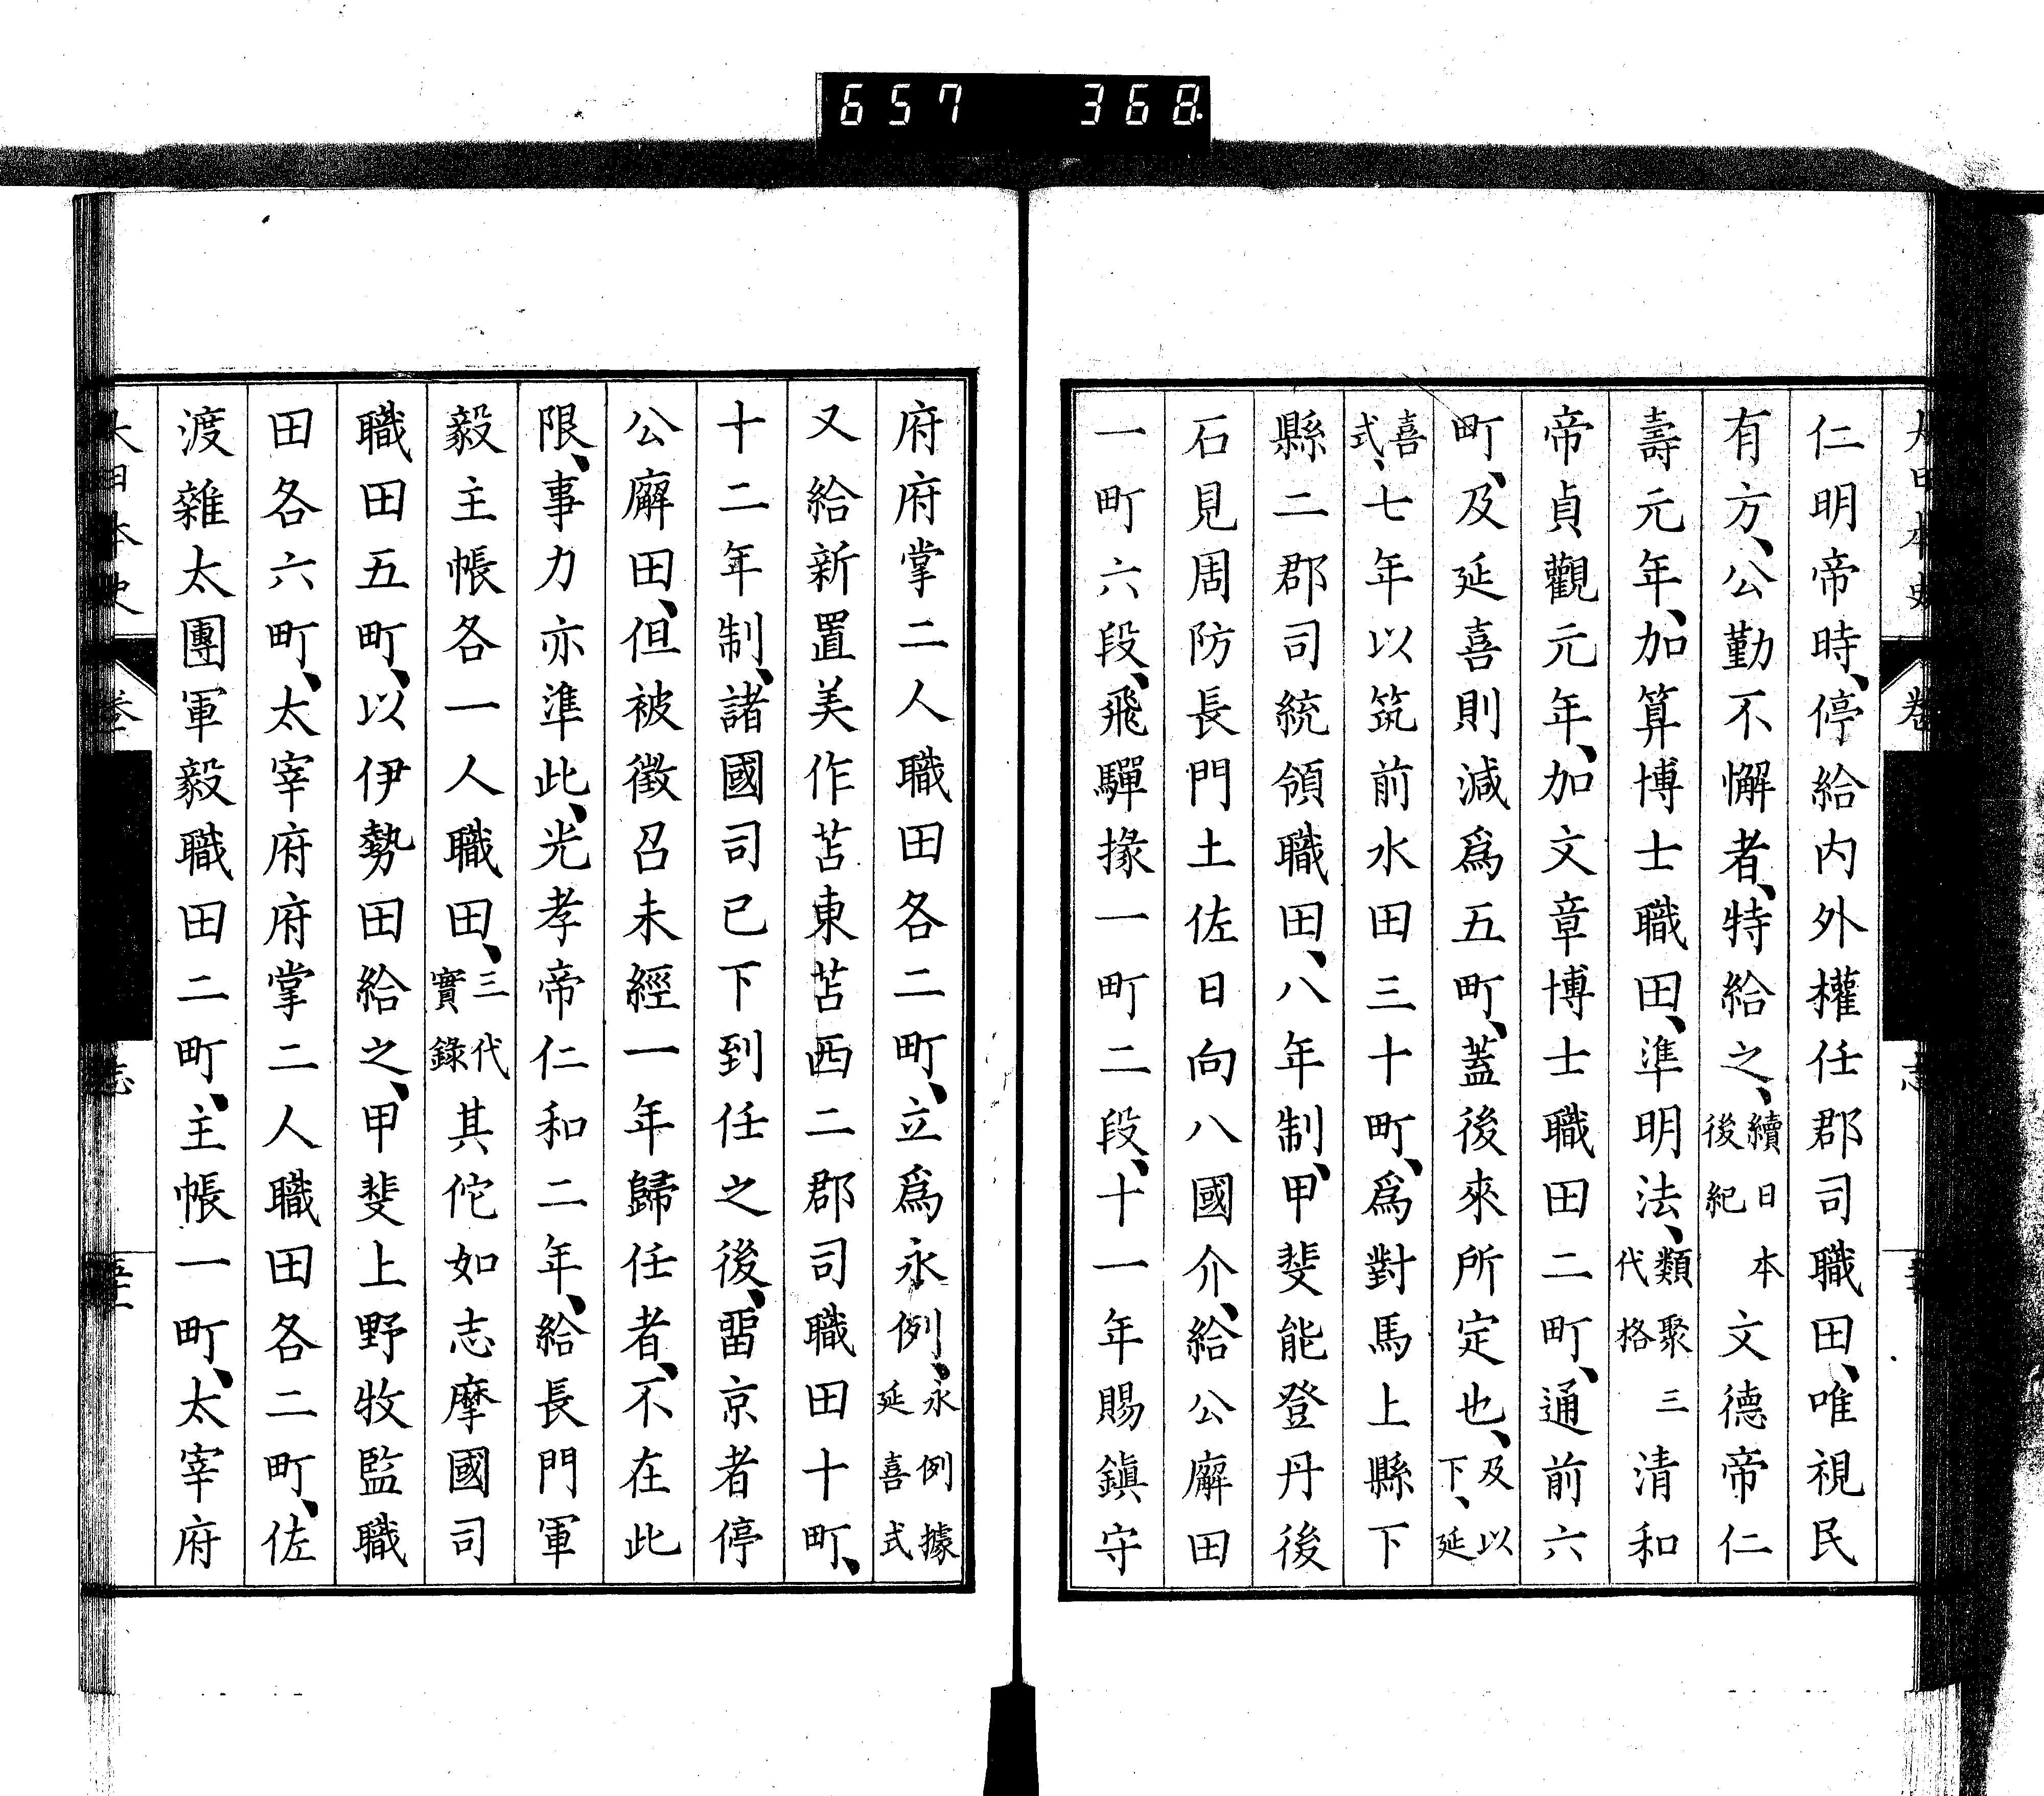 657 368
仁明帝時、停給内外權任郡司職田、唯視民
有方、公勤不懈者、特給之、續日本後紀文德帝仁
壽元年、加算博士職田、準明法、類聚三代格清和
帝貞觀元年、加文章博士職田二町、通前六
町、及延喜則減爲五町、蓋後來所定也、及以下、延
喜式、七年以筑前水田三十町、爲對馬上縣下
縣二郡司統領職田、八年制、甲斐能登丹後
石見周防長門土佐日向八國介、給公廨田
一町六段、飛驒掾一町二段、十一年賜鎭守
府府掌二人職田各二町、立爲永例、永例據延喜式
又給新置美作苫東苫西二郡司職田十町、
十二年制、諸國司已下到任之後、畱京者停
公廨田、但被徵召未經一年歸任者、不在此
限、事力亦準此、光孝帝仁和二年、給長門軍
毅主帳各一人職田、三代實錄其佗如志摩國司
職田五町、以伊勢田給之、甲斐上野牧監職
田各六町、太宰府府掌二人職田各二町、佐
渡雜太團軍毅職田二町、主帳一町、太宰府